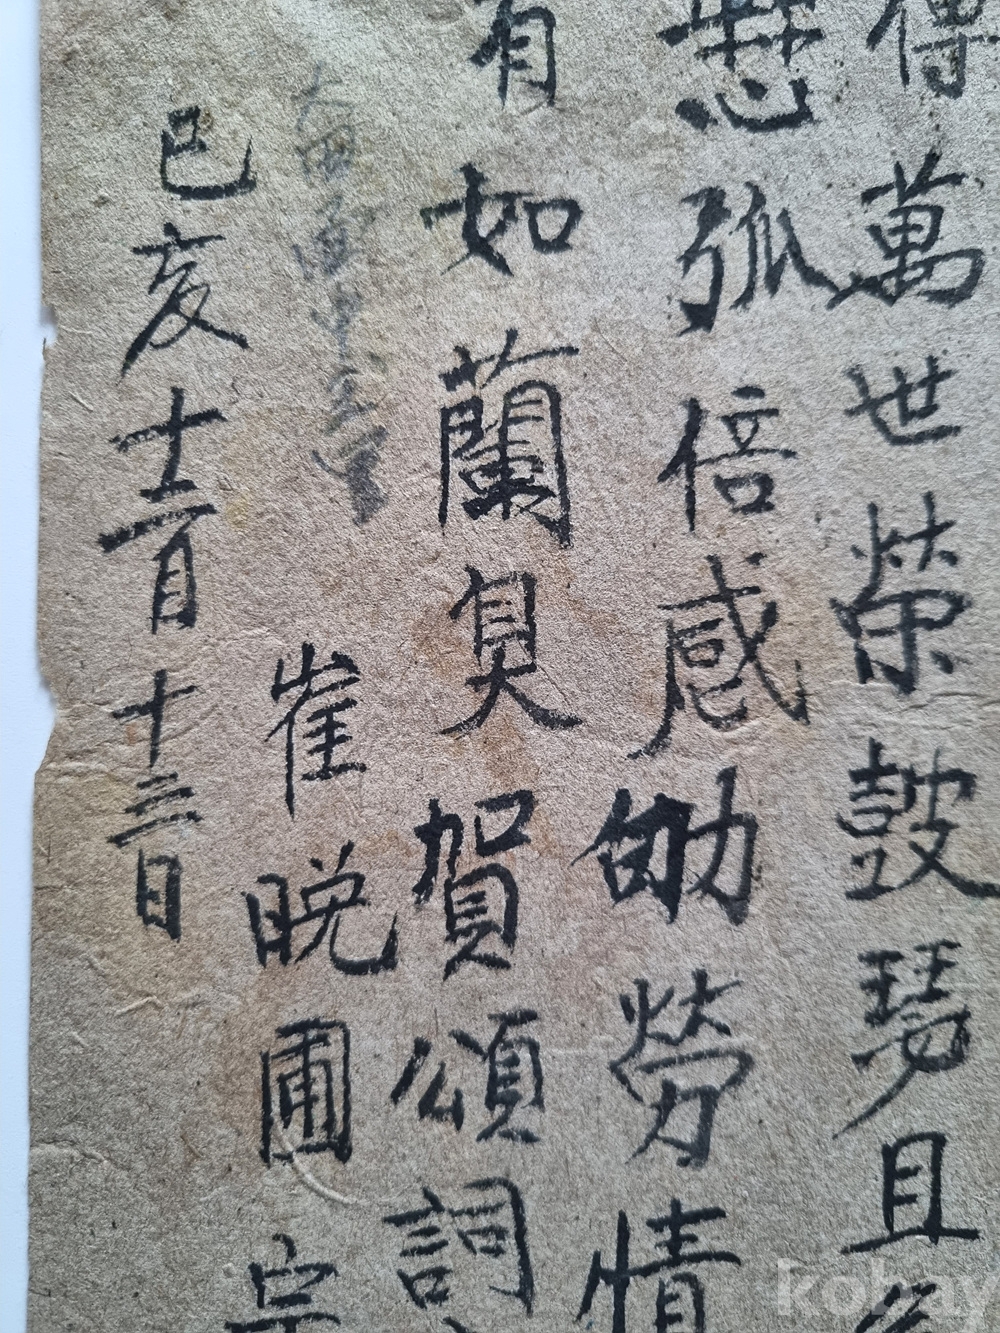 傳萬世榮鼓瑟且
孤倍感劬勞情
有如蘭臭賀頌詞
崔晩圃宗
巳亥十二月十三日
kobay